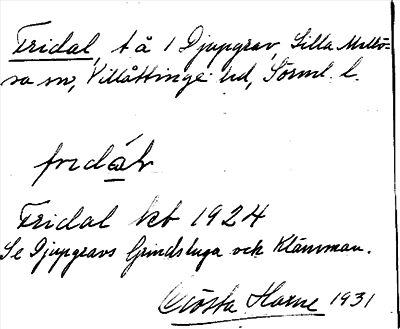 Fridal, t å 1 Djupgrav, Lilla Mellö-
sa sn, Villåttinge hd, Sörml. l.
fridàl
Fridal kb 1924
Se Djupgravs Grindstuga och Klämman.
Gösta Harne 1931